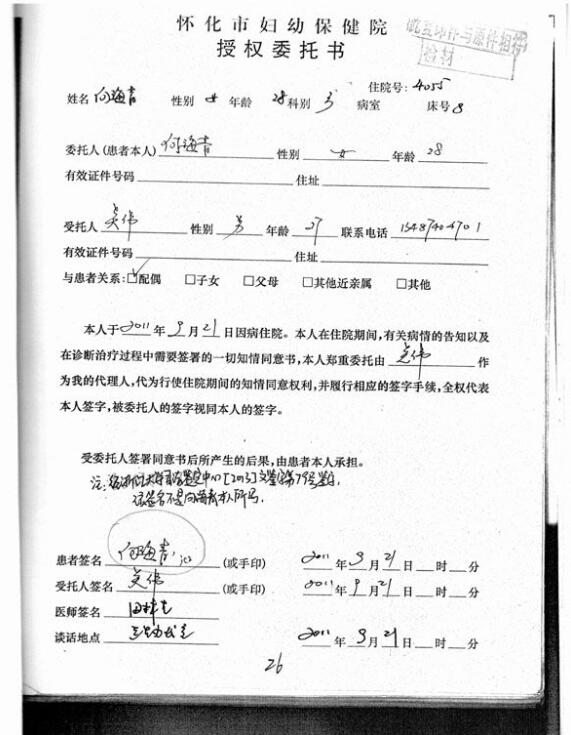 怀化市妇幼保健院
授权委托书
此复印件与原件相符
检材
住院号:4055
姓名 向海青 性别 女 年龄 28 科别 病室 床号 8
委托人(患者本人) 向海青 性别 女 年龄 28
有效证件号码 住址
受托人 吴伟 性别 男 年龄 37 联系电话
有效证件号码 住址
与患者关系:☑配偶 □子女 □父母 □其他近亲属 □其他
本人于2011年9月21日因病住院。本人在住院期间,有关病情的告知以及
在诊断治疗过程中需要签署的一切知情同意书,本人郑重委托由 吴伟 作
为我的代理人,代为行使住院期间的知情同意权利,并履行相应的签字手续,全权代表
本人签字,被委托人的签字视同本人的签字。
受委托人签署同意书后所产生的后果,由患者本人承担。
注: 鉴定中心[2013]文鉴第79号鉴定,
该签名不是向海青本人所写。
患者签名 向海青 (或手印) 2011年9月21日 时 分
受托人签名 吴伟 (或手印) 2011年9月21日 时 分
医师签名
谈话地点 2011年9月21日 时 分
26